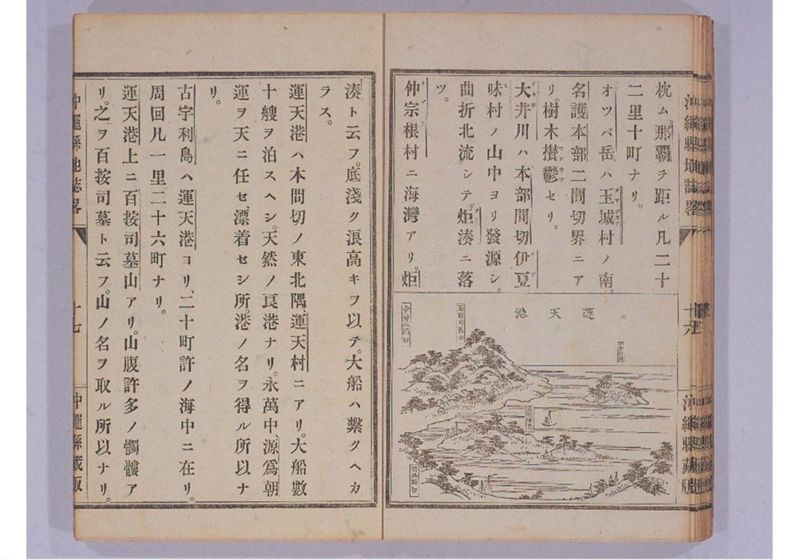 枕ム。那覇ヲ距ル凡二十
二里十町ナリ。
オツパ岳ハ玉城村ノ南。
名護本部二間切界ニア
リ樹木攅鬱セリ。
大井川ハ本部間切伊豆
味村ノ山中ヨリ發源シ。
曲折北流シテ。炬湊ニ落
ツ。
仲宗根村ニ海灣アリ。炬
運天港
沖繩縣地誌畧
十六
沖繩縣藏版
湊ト云フ。底淺ク浪高キヲ以テ。大船ハ繫クヘカ
ラス。
運天港ハ本間切ノ東北隅、運天村ニアリ。大船數
十艘ヲ泊スヘシ。天然ノ良港ナリ。永萬中。源爲朝
運ヲ天ニ任セ。漂着セシ所。港ノ名ヲ得ル所以ナ
リ。
古宇利島ハ運天港ヨリ、二十町許ノ海中ニ在リ。
周回凡一里二十六町ナリ。
運天港上ニ百按司墓山アリ。山腹許多ノ髑髏ア
リ。之ヲ百按司墓ト云フ。山ノ名ヲ取ル所以ナリ。
沖繩縣地誌畧
十七
沖繩縣藏版